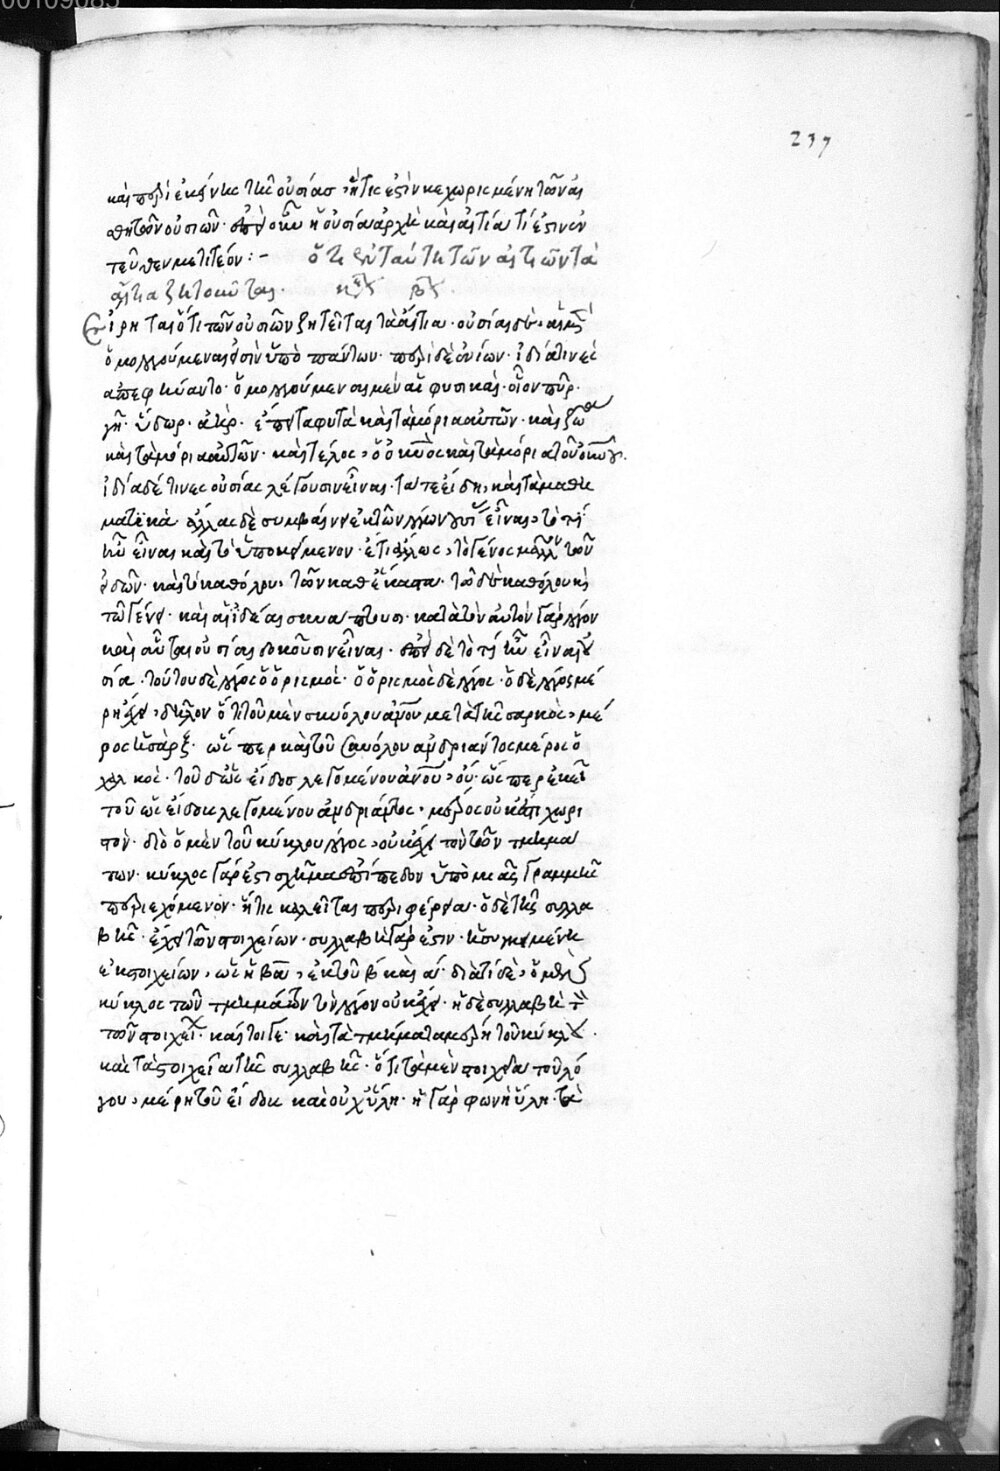 00109085
237
καὶ περὶ ἐκείνης τῆς οὐσίας, ἥτις ἐστὶν κεχωρισμένη τῶν αἰ
σθητῶν οὐσιῶν· ἐπεὶ οὖν ἡ οὐσία ἀρχὴ καὶ αἰτία τί ἐστιν ἐν
τεῦθεν μετιτέον:- ὅτι ἐν ταύτῃ τῶν αἰτιῶν τὰ
αἴτια ζητοῦνται.
Εἴρηται ὅτι τῶν οὐσιῶν ζητεῖται τὰ αἴτια· οὐσίαι δὲ, αἱ μὲν
ὁμολογούμεναι εἰσὶν ὑπὸ πάντων· περὶ δὲ ἐνίων· ἰδίᾳ τινες
ἀπεφήναντο· ὁμολογούμεναι μὲν αἱ φυσικαί· οἷον πῦρ·
γῆ· ὕδωρ· ἀήρ· ἔπειτα φυτὰ καὶ τὰ μόρια αὐτῶν· καὶ ζῶα
καὶ τὰ μόρια αὐτῶν· καὶ τέλος, ὁ οὐρανὸς καὶ τὰ μόρια τοῦ οὐρανοῦ.
ἰδίᾳ δέ τινες οὐσίας λέγουσιν εἶναι· τά τε εἴδη, καὶ τὰ μαθη
ματικά· ἄλλας δὲ συμβαίνει ἐκ τῶν λόγων οὐσίας εἶναι, τὸ τί
ἦν εἶναι καὶ τὸ ὑποκείμενον· ἔτι ἄλλως, τὸ γένος μᾶλλον τῶν
εἰδῶν· καὶ τὸ καθόλου, τῶν καθέκαστα· τῷ δὲ καθόλου καὶ
τῷ γένει· καὶ αἱ ἰδέαι συνάπτουσι· κατὰ τὸν αὐτὸν γὰρ λόγον
καὶ αὗται οὐσίαι δοκοῦσιν εἶναι· ἐπεὶ δὲ τὸ τί ἦν εἶναι οὐ
σία· τούτου δὲ λόγος ὁ ὁρισμός· ὁ ὁρισμὸς δὲ λόγος· ὁ δὲ λόγος μέ
ρη ἔχει, δῆλον ὅτι τοῦ μὲν συνόλου ἀνθρώπου μετὰ τῆς σαρκὸς, μέ
ρος ἡ σάρξ· ὥσπερ καὶ τοῦ συνόλου ἀνδριάντος μέρος ὁ
χαλκός· τοῦ δ' ὡς εἶδος λεγομένου ἀνθρώπου, οὔ· ὥσπερ ἐκεῖ
τοῦ ὡς εἶδος λεγομένου ἀνδριάντος, μέρος οὐκ ἔστι χωρι
στόν· διὸ ὁ μὲν τοῦ κύκλου λόγος, οὐκ ἔχει τὸν τῶν τμημά
των· κύκλος γάρ ἐστι σχῆμα ἐπίπεδον ὑπὸ μιᾶς γραμμῆς
περιεχόμενον· ἥτις καλεῖται περιφέρεια· ὁ δὲ τῆς συλλα
βῆς· ἔχει τῶν στοιχείων· συλλαβὴ γάρ ἐστιν· ἡ συγκειμένη
ἐκ στοιχείων, ὡς ἡ βα, ἐκ τοῦ β καὶ α· διὰ τί δὲ, ὁ μὲν
κύκλος τῶν τμημάτων τὸν λόγον οὐκ ἔχει· ἡ δὲ συλλαβὴ τὸν
τῶν στοιχείων· καίτοιγε· καὶ τὰ τμήματα μέρη τοῦ κύκλου·
καὶ τὰ στοιχεῖα τῆς συλλαβῆς· ὅτι τὰ μὲν στοιχεῖα τοῦ λό
γου, μέρη τοῦ εἴδους καὶ οὐχ ὕλη· ἡ γὰρ φωνὴ ὕλη· τὰ